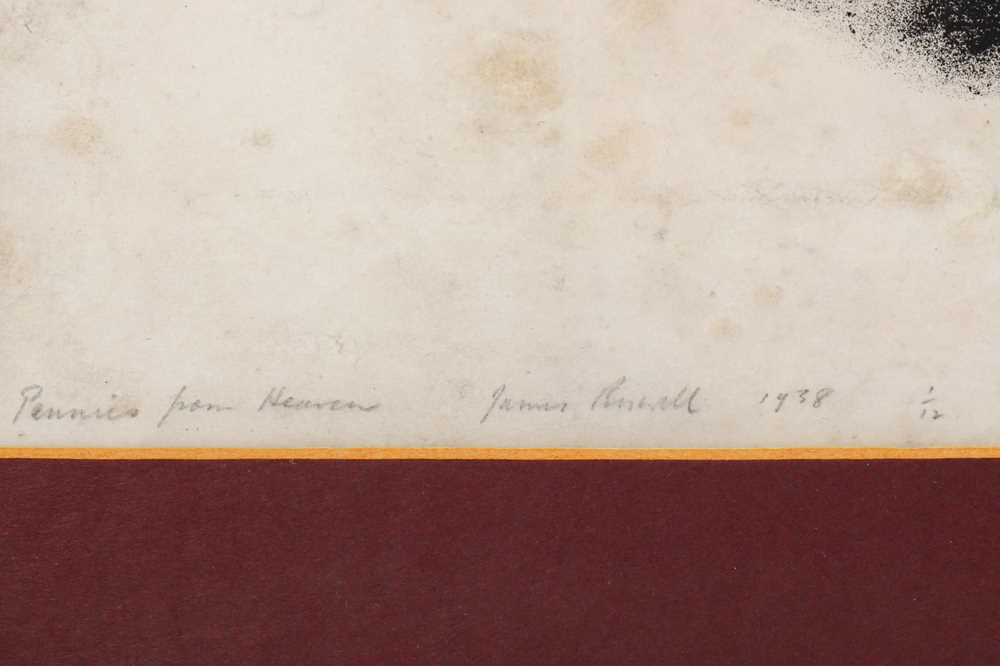 Pennies from Heaven James Boswell 1938 1/12